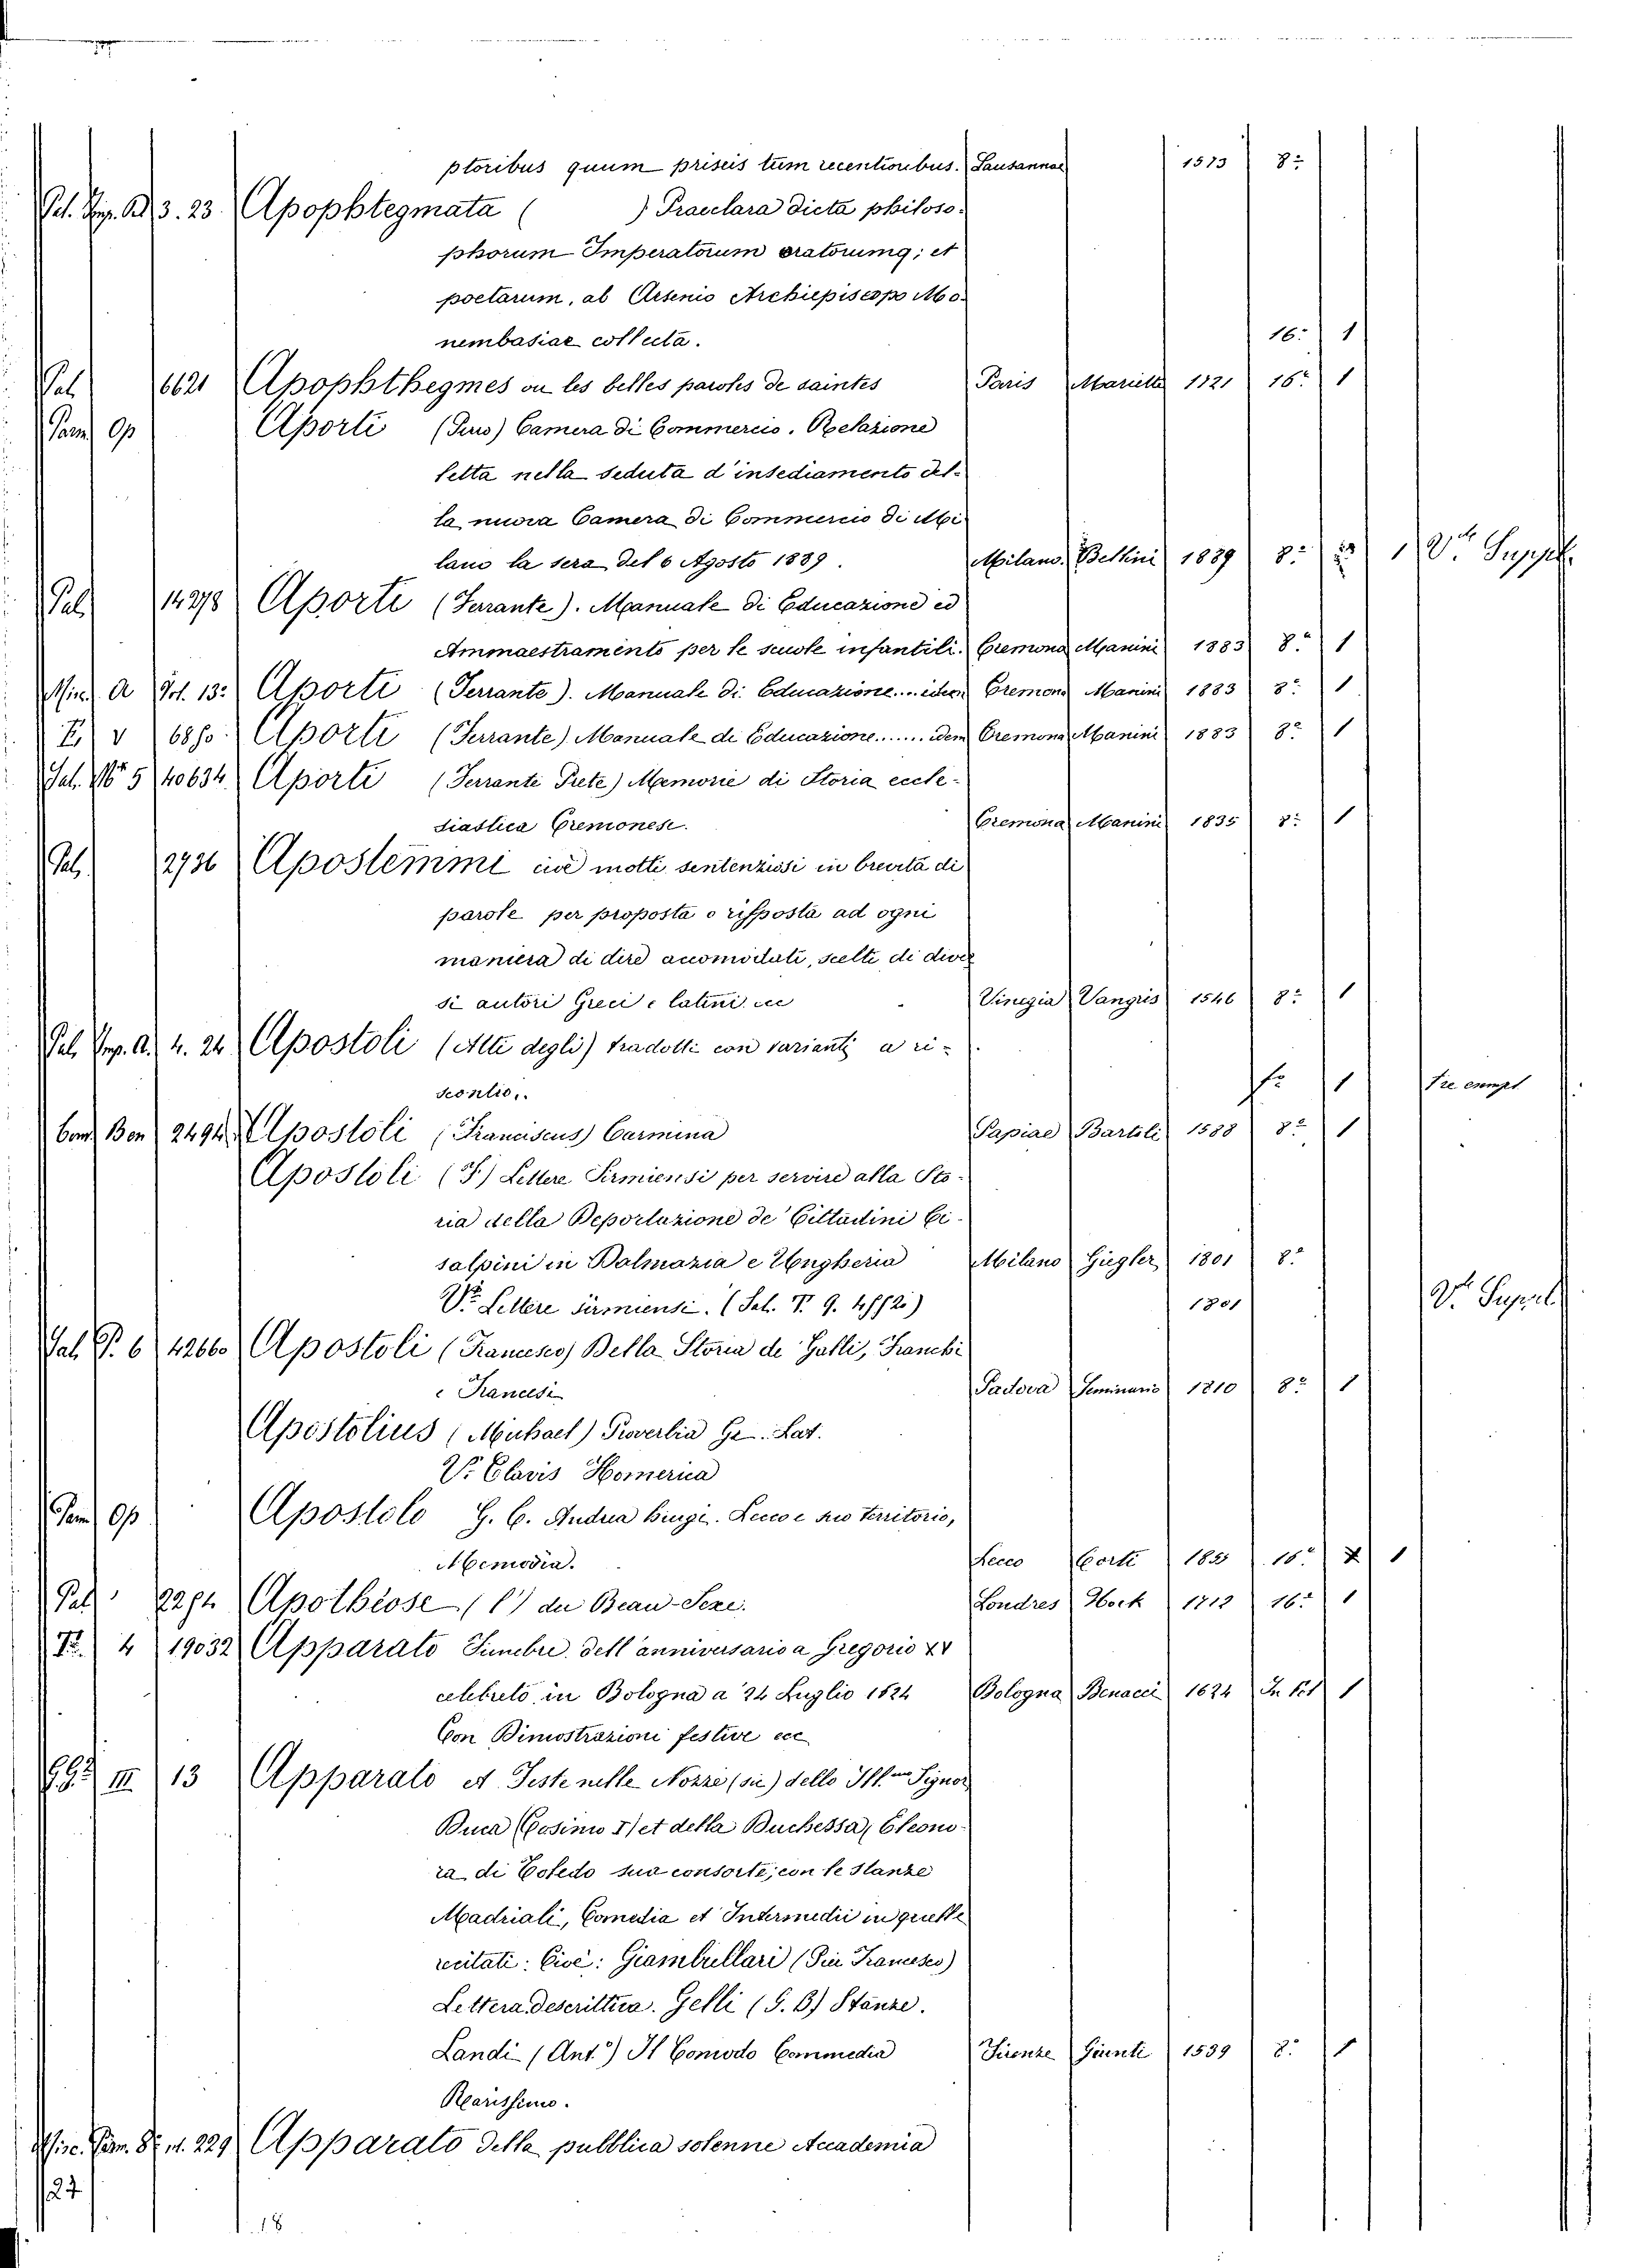 ptoribus quum priscis tum recentioribus. Lausannae 1573 8º
Pal. Imp. A. 3. 23. Apophtegmata ( ) Praeclara dicta philoso-
phorum Imperatorum oratorumq; et
poetarum, ab Arsenio Archiepiscopo Mo-
nembasiae collecta. 16º 1
Pal 6621 Apophthegmes ou les belles paroles de saintes Paris Mariette 1721 16º 1
Pam Op Aporti (Piro) Camera di Commercio. Relazione
letta nella seduta d'insediamento del-
la nuova Camera di Commercio di Mi-
lano la sera del 6 Agosto 1889. Milano. Bellini 1889 8º 1 Vº Suppl.
Pal 14278 Aporti (Ferrante). Manuale di Educazione ed
Ammaestramento per le scuole infantili. Cremona Manini 1833 8º 1
Misc. A Tol. 13. Aporti (Ferrante). Manuale di Educazione.... idem Cremona Manini 1833 8º 1
F. V 6880. Aporti (Ferrante) Manuale di Educazione...... idem Cremona Manini 1833 8º 1
Sal. Mº 5 40634. Aporti (Ferrante Prete) Memorie di Storia eccle-
siastica Cremonese. Cremona Manini 1835 8º 1
Pal. 2736 Apostemmi cioè motti sentenziosi in brevità di
parole per proposta o risposta ad ogni
maniera di dire accomodati, scelti di diver
si autori Greci e latini in Vinegia Vangris 1546 8º 1
Pal. Imp. A. 4. 24 Apostoli (Atti degli) tradotti con varianti a ri-
scontro. fº 1 Tre esempl
Com Bon 2494. Apostoli (Franciscus) Carmina Papiae Bartoli 1588 8º 1
Apostoli (F.) Lettere Sirmiensi per servire alla Sto-
ria della Deportazione de' Cittadini Ci-
salpini in Dalmazia e Ungheria Milano Giegler 1801 8º
Vº Lettere sirmiensi. (Sal. T. 9. 4882.) 1801 Vº Suppl
Sal. P. 6 42660 Apostoli (Francesco) Della Storia de Galli, Franchi
e Francesi Padova Seminario 1810 8º 1
Apostolius (Michael) Proverbia Gr. Lat.
Vº Clavis Homerica
Pam Op Apostolo G. C. Andrea Bingi. Lecco e suo territorio,
Memoria. Lecco Corti 1855 16º 1
Pal 2294 Apothéose (l') du Beau-Sexe. Londres Hock 1712 16º 1
Tº. 4 19032 Apparato Funebre dell'anniversario a Gregorio XV
celebrato in Bologna a 24 Luglio 1624 Bologna Benacci 1624 In fol 1
Con Dimostrazioni festive ecc
III 13 Apparato et Feste nelle Nozze (sic) dello Ill.mo Signor
Duca (Cosimo I) et della Duchessa, Eleono-
ra di Toledo sua consorte, con le stanze
Madriali, Comedia et Intermedii in quelle
recitati: Cioè: Giambullari (Pier Francesco)
Lettera descrittiva. Gelli (G. B.) Stanze.
Landi (Ant.º) Il Comodo Commedia Firenze Giunti 1539 8º 1
Rarissimo.
Misc. Pam. 8º n. 229 Apparato della pubblica solenne Accademia
27
18